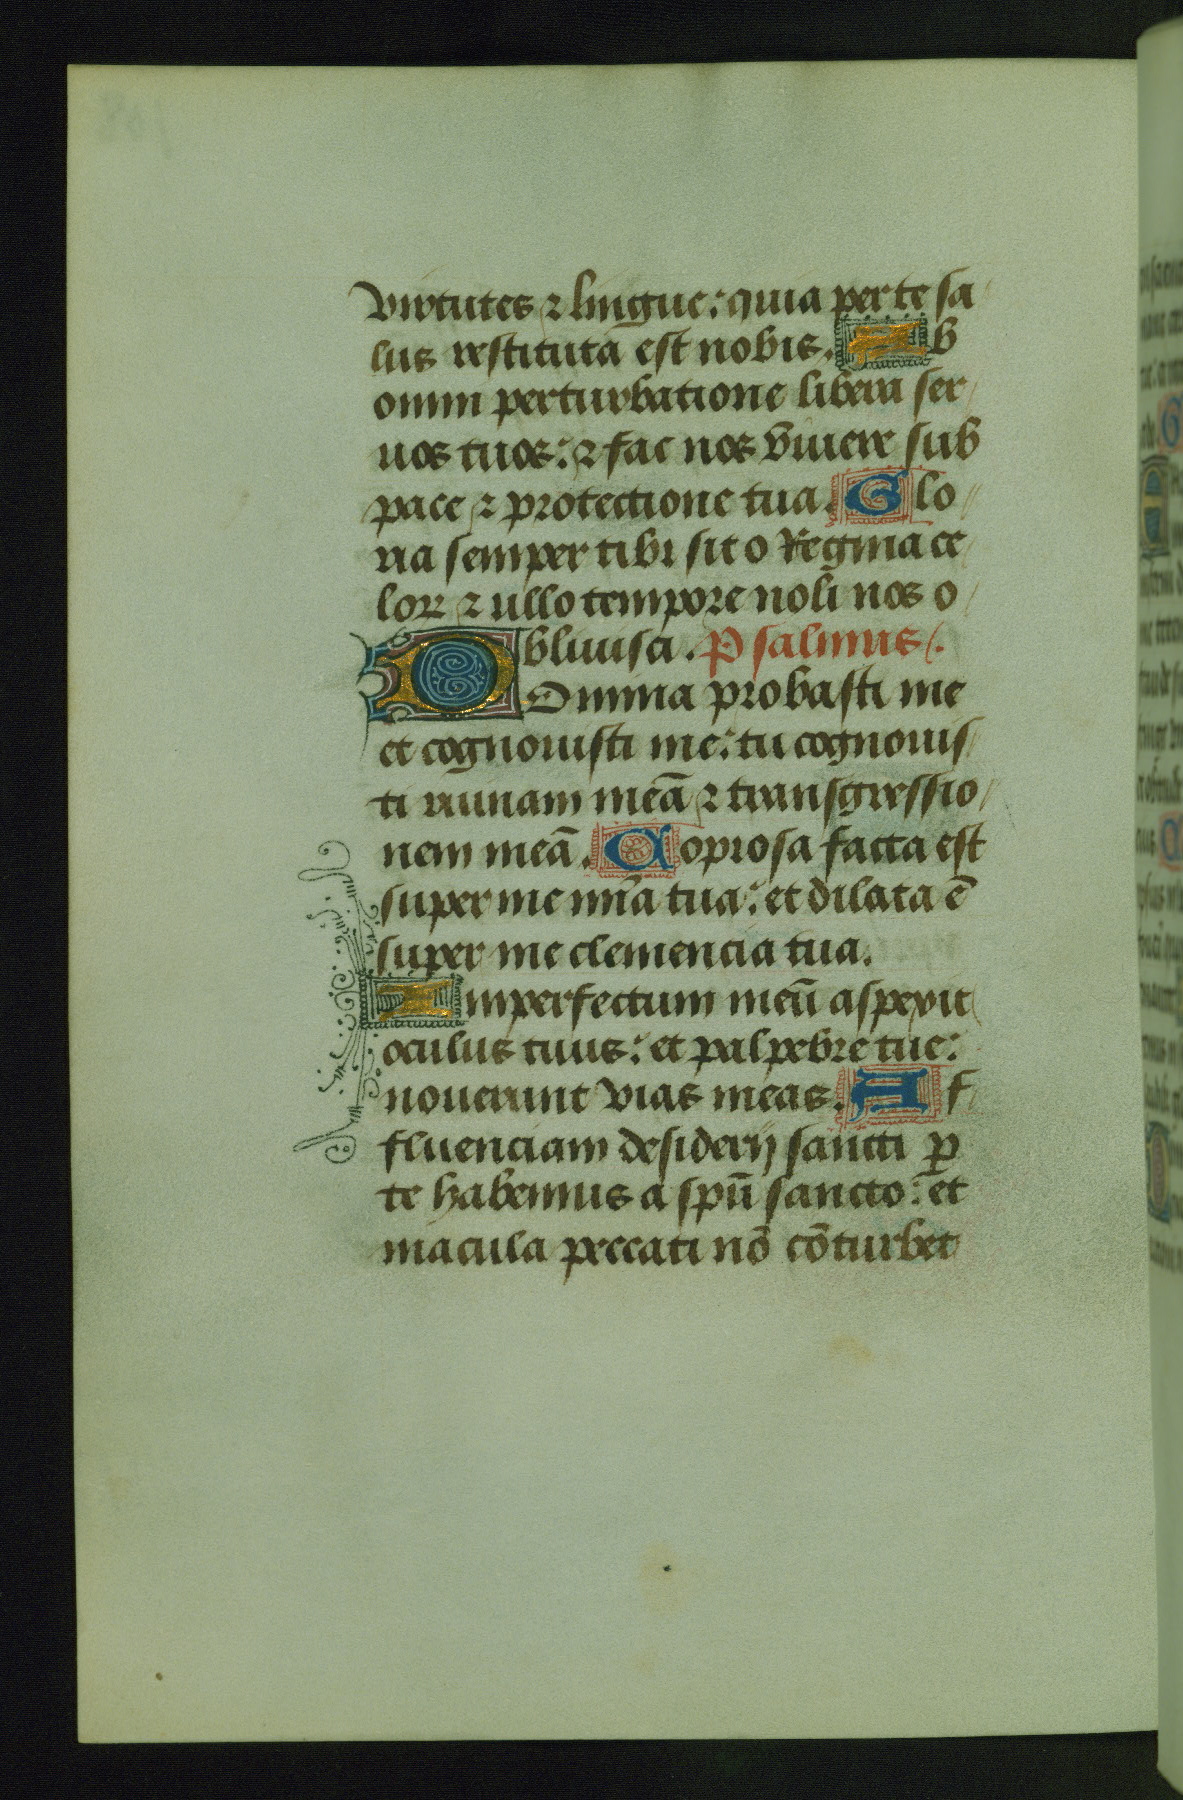 virtutes ⁊ lingue: quia per te sa
lus restituta est nobis. Ab
omni perturbatione libera ser
uos tuos: ⁊ fac nos viuere sub
pace ⁊ protectione tua. Glo
ria semper tibi sit o Regina ce
loꝝ ⁊ ullo tempore noli nos o
bliuisci. Psalmus.
DOmina probasti me
et cognouisti me: tu cognouis
ti ruinam meā ⁊ transgressio
nem meā. Copiosa facta est
super me mīa tua: et dilata ē
super me clemencia tua.
Imperfectum meū aspexit
oculus tuus: et palpebre tue:
nouerunt vias meas. Af
fluenciam desiderij sancti ꝑ
te habemus a spū sancto: et
macula peccati nō cōturbet